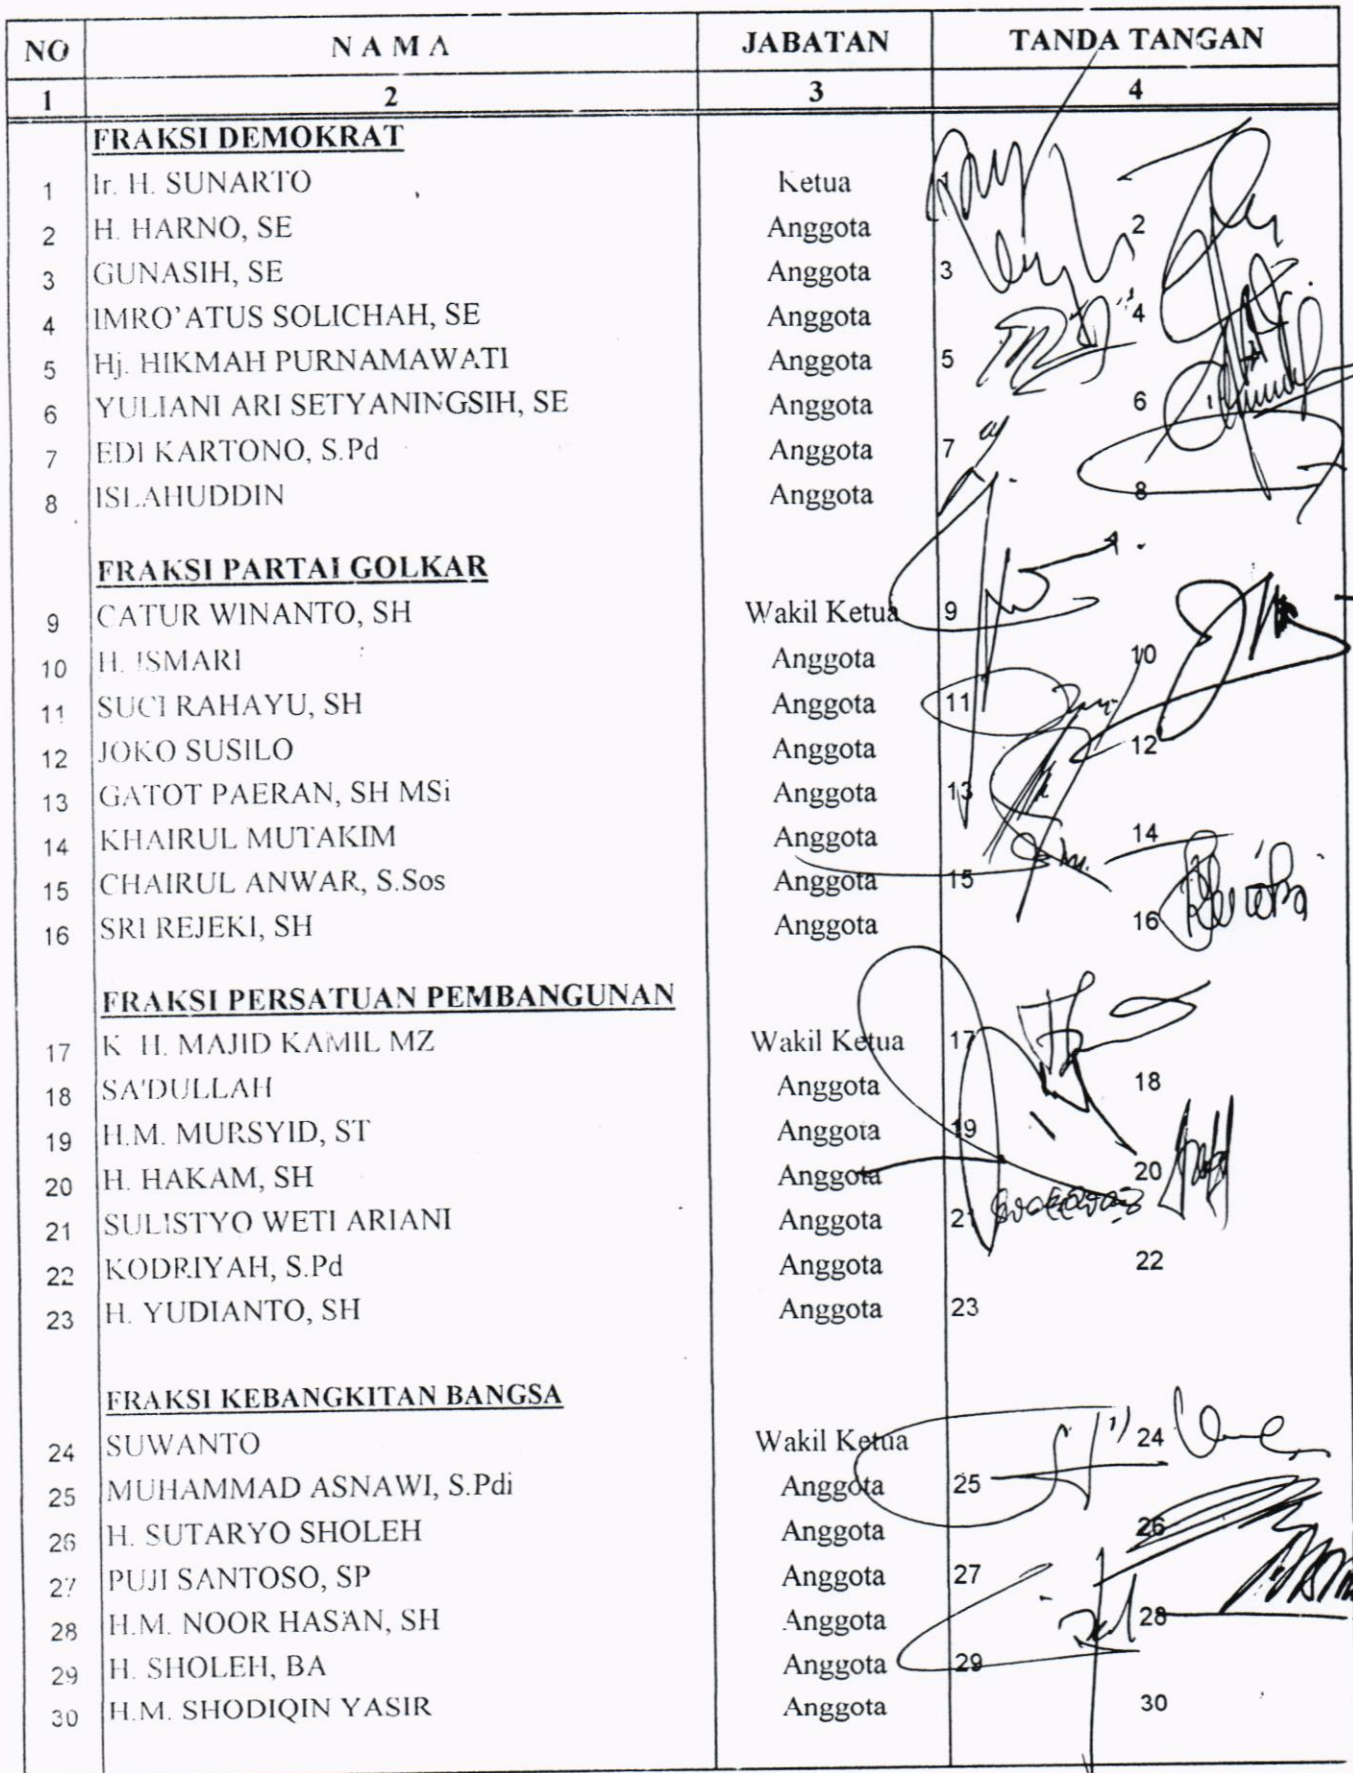 NO N A M A JABATAN TANDA TANGAN
1 2 3 4
FRAKSI DEMOKRAT
1 Ir. H. SUNARTO Ketua 1
2 H. HARNO, SE Anggota 2
3 GUNASIH, SE Anggota 3
4 IMRO'ATUS SOLICHAH, SE Anggota 4
5 Hj. HIKMAH PURNAMAWATI Anggota 5
6 YULIANI ARI SETYANINGSIH, SE Anggota 6
7 EDI KARTONO, S.Pd Anggota 7
8 ISLAHUDDIN Anggota 8
FRAKSI PARTAI GOLKAR
9 CATUR WINANTO, SH Wakil Ketua 9
10 H. ISMARI Anggota 10
11 SUCI RAHAYU, SH Anggota 11
12 JOKO SUSILO Anggota 12
13 GATOT PAERAN, SH MSi Anggota 13
14 KHAIRUL MUTAKIM Anggota 14
15 CHAIRUL ANWAR, S.Sos Anggota 15
16 SRI REJEKI, SH Anggota 16
FRAKSI PERSATUAN PEMBANGUNAN
17 K H. MAJID KAMIL MZ Wakil Ketua 17
18 SA'DULLAH Anggota 18
19 H.M. MURSYID, ST Anggota 19
20 H. HAKAM, SH Anggota 20
21 SULISTYO WETI ARIANI Anggota 21
22 KODRIYAH, S.Pd Anggota 22
23 H. YUDIANTO, SH Anggota 23
FRAKSI KEBANGKITAN BANGSA
24 SUWANTO Wakil Ketua 24
25 MUHAMMAD ASNAWI, S.Pdi Anggota 25
26 H. SUTARYO SHOLEH Anggota 26
27 PUJI SANTOSO, SP Anggota 27
28 H.M. NOOR HASAN, SH Anggota 28
29 H. SHOLEH, BA Anggota 29
30 H.M. SHODIQIN YASIR Anggota 30